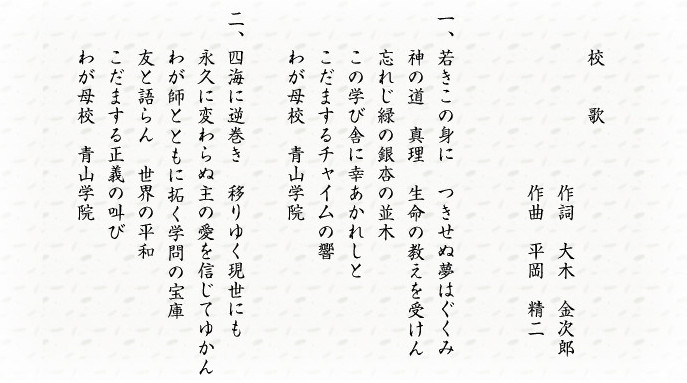 校　歌
作詞　大木　金次郎
作曲　平岡　精二
一、若きこの身に　つきせぬ夢はぐくみ
神の道　真理　生命の教えを受けん
忘れじ緑の銀杏の並木
この学び舎に幸あかれしと
こだまするチャイムの響
わが母校　青山学院
二、四海に逆巻き　移りゆく現世にも
永久に変わらぬ主の愛を信じてゆかん
わが師とともに拓く学問の宝庫
友と語らん　世界の平和
こだまする正義の叫び
わが母校　青山学院